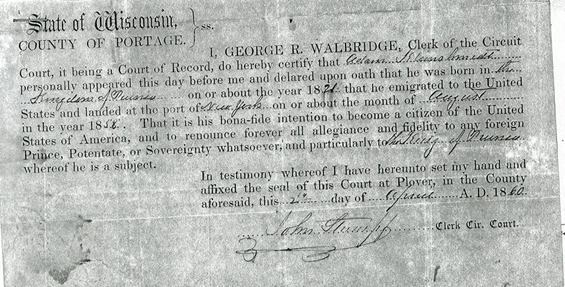 State of Wisconsin,
COUNTY OF PORTAGE. } ss.
I, GEORGE R. WALBRIDGE, Clerk of the Circuit
Court, it being a Court of Record, do hereby certify that Adam
personally appeared this day before me and delared upon oath that he was born in the
Kingdom of Prussia on or about the year 182 that he emigrated to the United
States and landed at the port of New York on or about the month of August
in the year 185 That it is his bona-fide intention to become a citizen of the United
States of America, and to renounce forever all allegiance and fidelity to any foreign
Prince, Potentate, or Sovereignty whatsoever, and particularly to the King of Prussia
whereof he is a subject.
In testimony whereof I have hereunto set my hand and
affixed the seal of this Court at Plover, in the County
aforesaid, this 2 day of April A. D. 1860.
John Stumpf Clerk Cir. Court.